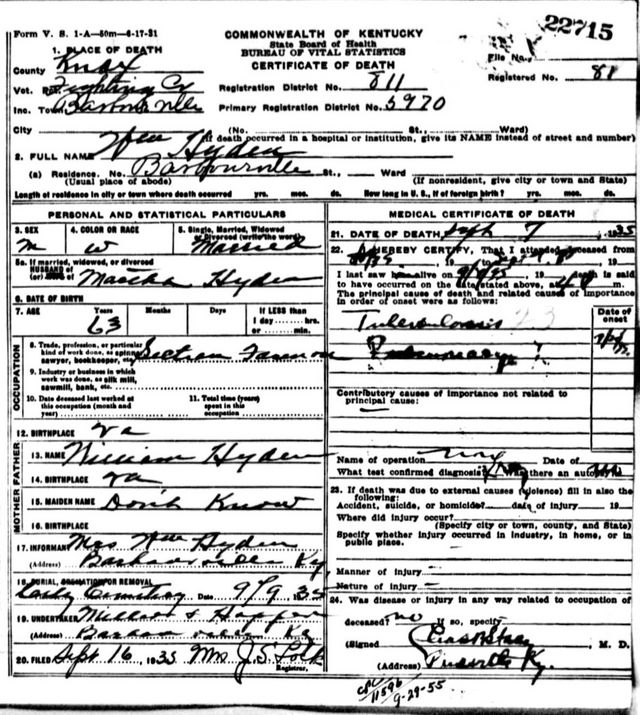 Form V. S. 1-A—50m—6-17-31
22715
COMMONWEALTH OF KENTUCKY
State Board of Health
BUREAU OF VITAL STATISTICS
CERTIFICATE OF DEATH
File No.
Registered No. 81
1. PLACE OF DEATH
County Knox
Vot. Pct.
Inc. Town Barbourville
Registration District No. 811
Primary Registration District No. 5970
City (No. St., Ward)
(If death occurred in a hospital or institution, give its NAME instead of street and number)
2. FULL NAME Wm Hyden
(a) Residence. No. Barbourville St., Ward
(Usual place of abode) (If nonresident, give city or town and State)
Length of residence in city or town where death occurred yrs. mos. ds. How long in U. S., if of foreign birth? yrs. mos. ds.
PERSONAL AND STATISTICAL PARTICULARS
3. SEX 4. COLOR OR RACE 5. Single, Married, Widowed
or Divorced (write the word)
m w Married
5a. If married, widowed, or divorced
HUSBAND of
(or) Martha Hyden
6. DATE OF BIRTH
7. AGE Years Months Days If LESS than
1 day......hrs.
or......min.
63
OCCUPATION
8. Trade, profession, or particular
kind of work done, as spinner,
sawyer, bookkeeper, etc.
9. Industry or business in which
work was done, as silk mill,
sawmill, bank, etc.
10. Date deceased last worked at
this occupation (month and
year)
11. Total time (years)
spent in this
occupation
12. BIRTHPLACE Va
FATHER
13. NAME William Hyden
14. BIRTHPLACE Va
MOTHER
15. MAIDEN NAME Don't Know
16. BIRTHPLACE
17. INFORMANT Mrs Wm Hyden
(Address) Barbourville Ky
18. BURIAL, CREMATION OR REMOVAL
Cemetery 9/9 35
19. UNDERTAKER
(Address) Barbourville Ky
20. FILED Sept 16, 1935 Mrs J. S.
Registrar.
MEDICAL CERTIFICATE OF DEATH
21. DATE OF DEATH Sept 7 1935
22. I HEREBY CERTIFY, That I attended deceased from
I last saw h alive on 19 death is said
to have occurred on the date stated above, at
The principal cause of death and related causes of importance
in order of onset were as follows:
Date of
onset
Tuberculosis 23
Pulmonary
Contributory causes of importance not related to
principal cause:
Name of operation Date of
What test confirmed diagnosis? Was there an autopsy?
23. If death was due to external causes (violence) fill in also the
following:
Accident, suicide, or homicide? date of injury 19
Where did injury occur?
(Specify city or town, county, and State)
Specify whether injury occurred in industry, in home, or in
public place.
Manner of injury —
Nature of injury —
24. Was disease or injury in any way related to occupation of
deceased? no If so, specify
(Signed) M. D.
(Address) Pineville Ky.
11596
9-29-55